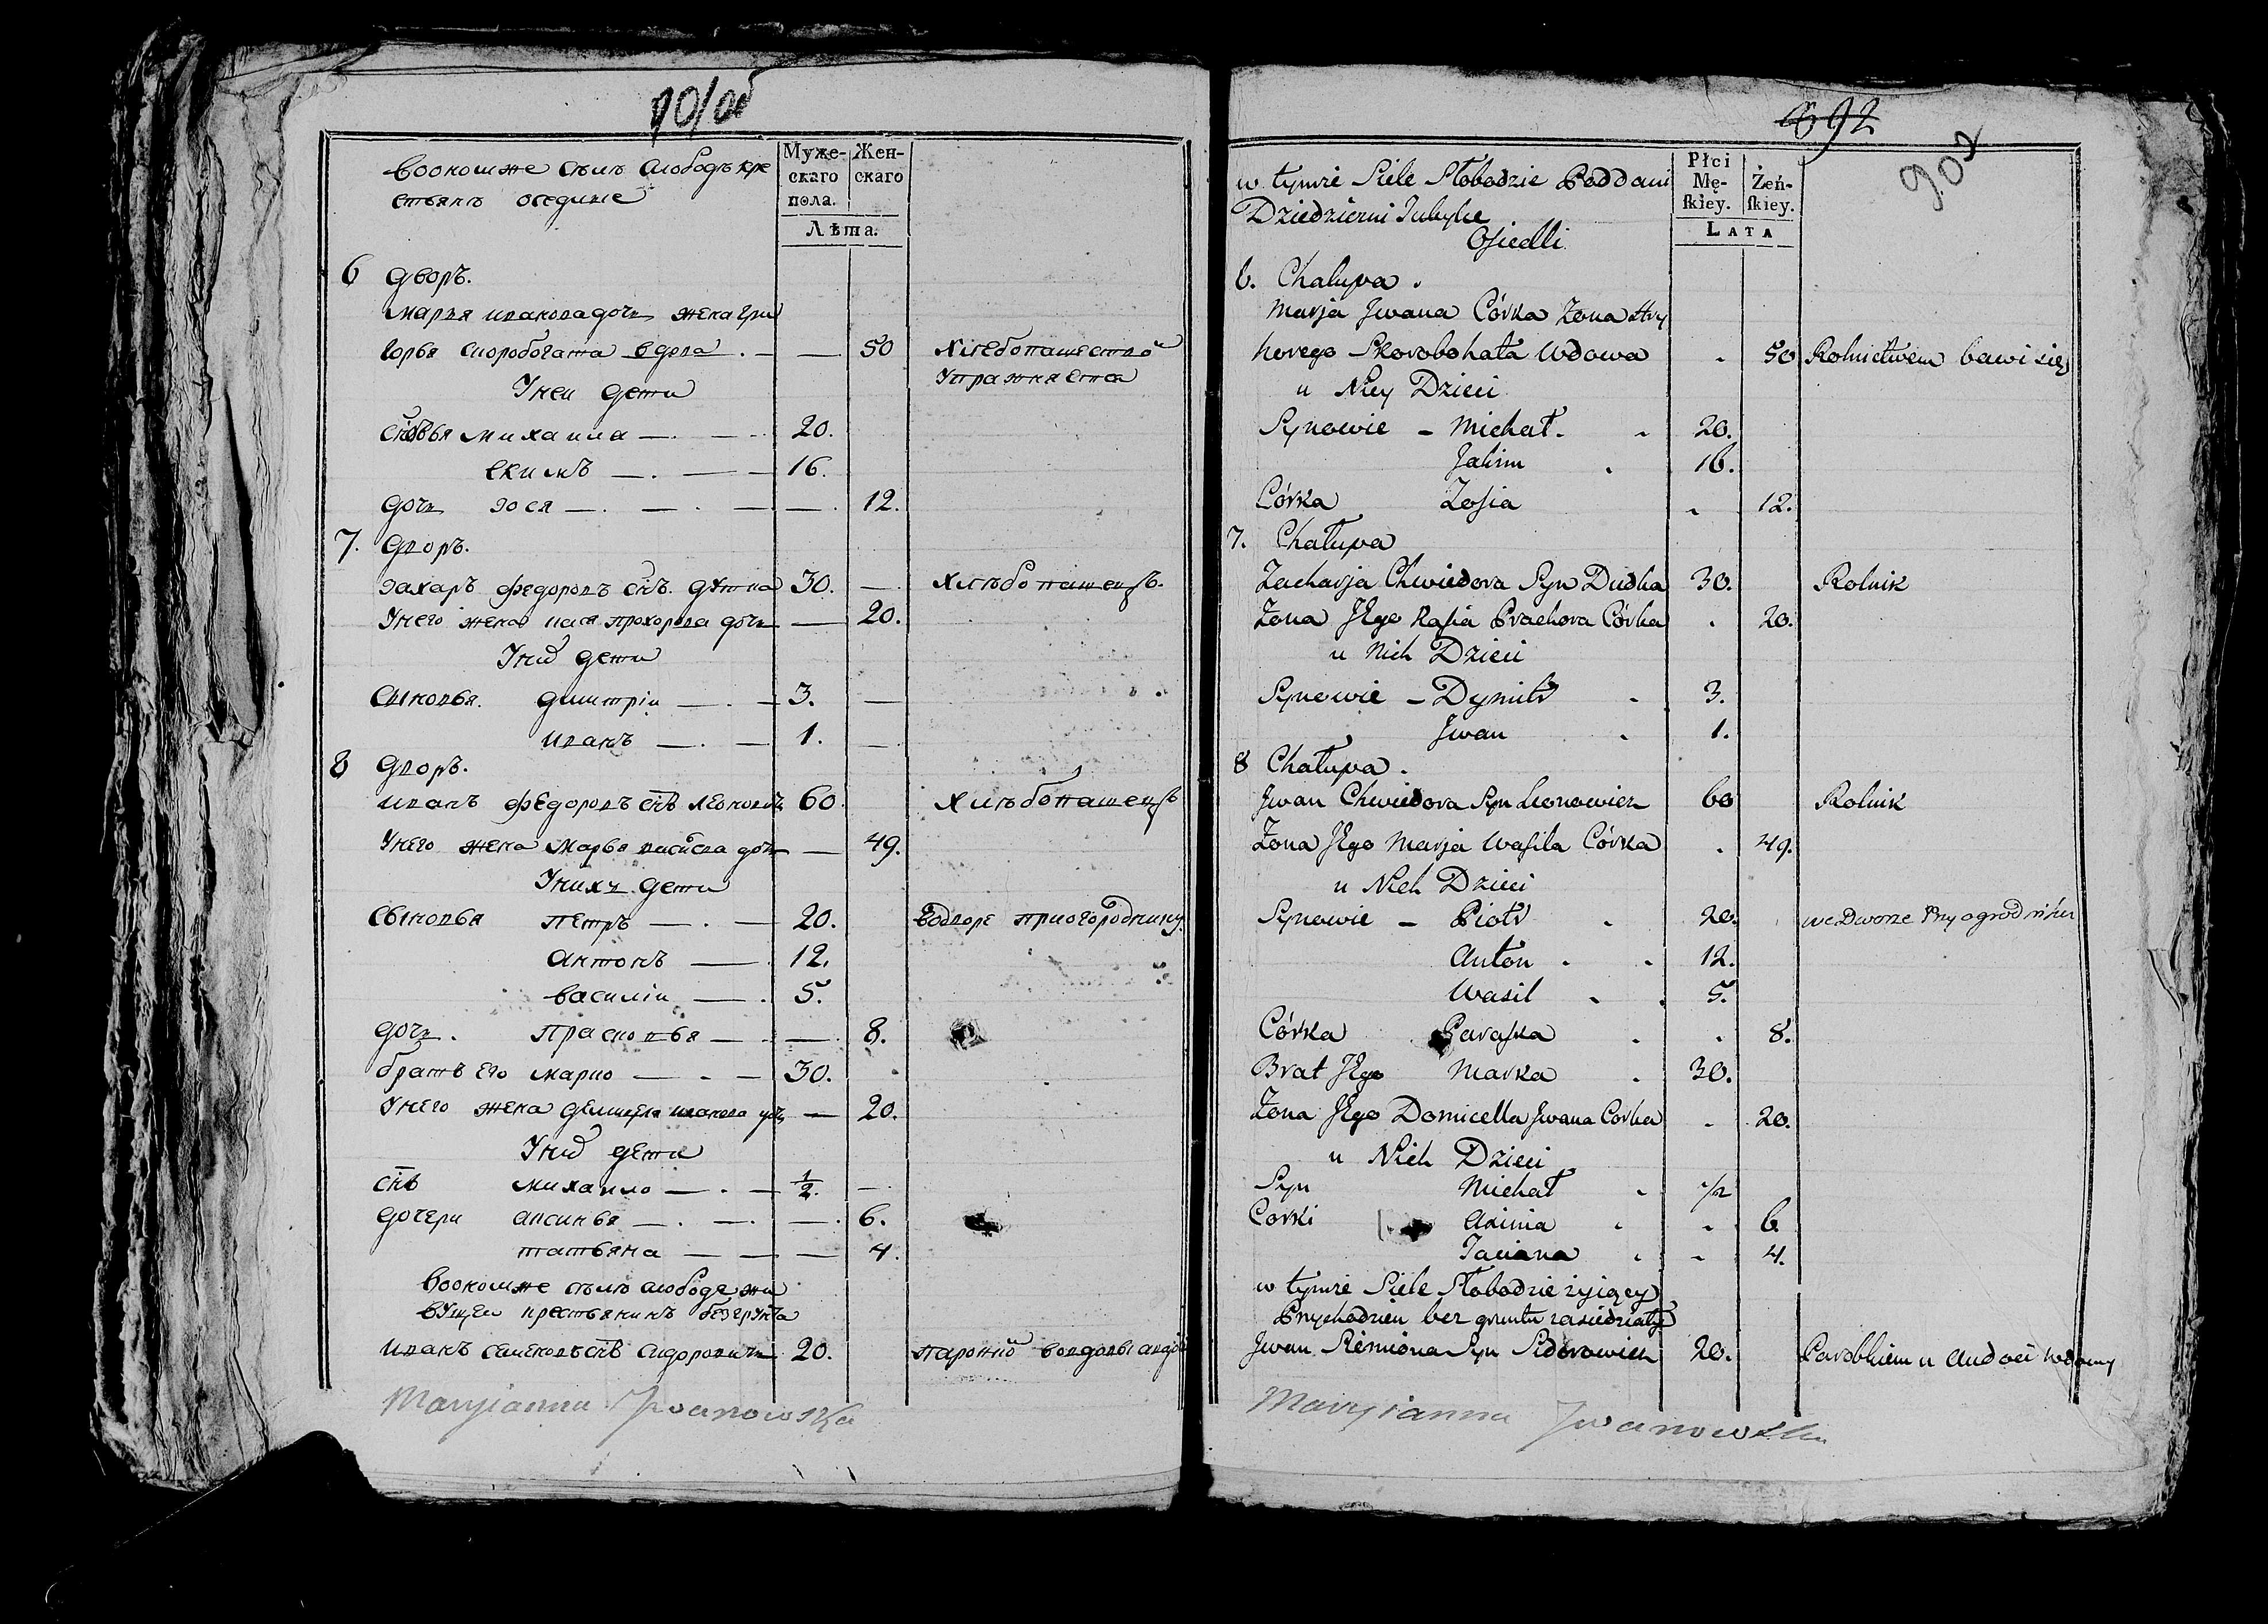 90/об
Воономже селѣ слободѣ кре
стьянъ оседлые
Муже-
скаго
пола.
Жен-
скаго
Лѣта.
6 дворъ.
марья иванова дочь жена гри
горья скоробогата вдова . — — 50 хлебопашествō
Упражняется
Унеи дети
сн͠овья михаила — . — 20.
екимъ — . — 16.
дочь зося — . — . — 12.
7. дворъ.
захаръ федоровъ сн͠ъ дутка 30. — хлѣбопашецъ.
Унего жена кася прохорова дочь — 20.
Уних дети
сыновья. димитріи — . — 3. —
иванъ — . — 1. —
8 дворъ.
иванъ федоровъ сн͠ъ леоновичь 60. хлѣбопашецъ
Унего жена марья васи͠лева дочь — 49.
Унихъ дети
сыновья петръ — . — 20. вдворе приогороднику.
антонъ — . 12.
василіи — . 5.
дочь . прасковья — . — . 8.
братъ его марко — . — 30.
Унего жена демицеля иванова дочь — 20.
Уних дети
сн͠ъ михаило — . — 1/2. —
дочери аксинья — . — . — . 6.
татьяна — — — 4.
Воономже селѣ слободе жи
вущеи крестьянинъ безгрунта
иванъ семеновъ сн͠ъ сидоровичь 20. паропкō
Maryianna Iwanowska
692
902
w tymże Siele Słobodzie Poddani
Dziedziczni
Osiedli
Płci
Mę-
skiey.
Żeń-
skiey.
LATA
6. Chałupa .
Marja Jwana Córka Żona Hry
horego Skorobohata Wdowa . 50 Rolnictwem bawi się
u Niey Dzieci
Synowie – Michał . 20.
Jakim . 16.
Córka Zofia . 12.
7. Chałupa
Zacharja Chwiedora Syn Dudka 30. Rolnik
Żona Jego Kasia Prachora Córka . 20.
u Nich Dzieci
Synowie – Dymitr . 3.
Jwan . 1.
8 Chałupa .
Jwan Chwiedora Syn Leonowicz 60 Rolnik
Żona Jego Marja Wasila Córka . 49.
u Nich Dzieci
Synowie – Piotr . 20. we Dworze Przy ogrodniku
Anton . . 12.
Wasil . . 5.
Córka Paraska . . 8.
Brat Jego Marka . 30.
Żona Jego Domicella Jwana Corka . 20.
u Nich Dzieci
Syn Michał . 1/2
Corki Axinia . . 6
Taciana . . 4.
w tymże Siele Słobodzie żyiący
Przychodzień bez gruntu zasiedziały
Jwan Siemiona Syn Sidorowicz 20. Parobkiem u Wdowy
Maryianna Jwanowska